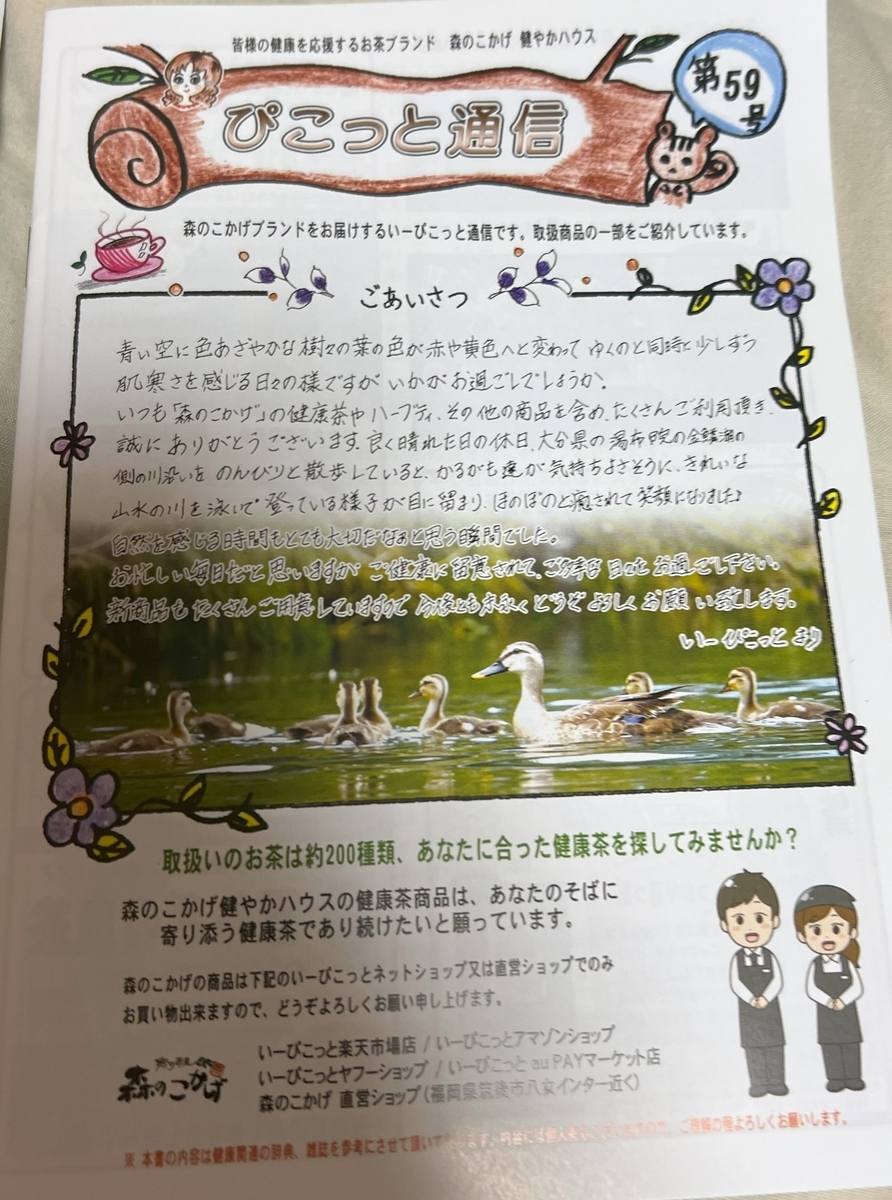 皆様の健康を応援するお茶ブランド 森のこかげ 健やかハウス
ぴこっと通信
第59号
森のこかげブランドをお届けするいーぴこっと通信です。取扱商品の一部をご紹介しています。
ごあいさつ
青い空に色あざやかな樹々の葉の色が赤や黄色へと変わって ゆくのと同時に少しずつ
肌寒さを感じる日々の様ですが いかがお過ごしでしょうか。
いつも「森のこかげ」の健康茶やハーブティ、その他の商品を含め、たくさんご利用頂き、
誠にありがとうございます。良く晴れた日の休日、大分県の湯布院の金鱗湖の
側の川沿いを のんびりと散歩していると、かるがも達が気持ちよさそうに、きれいな
山水の川を泳いで 登っている様子が目に留まり、ほのぼのと癒されて笑顔になりました♪
自然を感じる時間もとても大切だなぁと思う瞬間でした。
お忙しい毎日だと思いますが ご健康に留意されて、ご多幸な日々をお過ごし下さい。
新商品もたくさんご用意していますので 今後とも末永くどうぞよろしくお願い致します。
いーぴこっとより
取扱いのお茶は約200種類、あなたに合った健康茶を探してみませんか？
森のこかげ健やかハウスの健康茶商品は、あなたのそばに
寄り添う健康茶であり続けたいと願っています。
森のこかげの商品は下記のいーぴこっとネットショップ又は直営ショップでのみ
お買い物出来ますので、どうぞよろしくお願い申し上げます。
森のこかげ
いーぴこっと楽天市場店 / いーぴこっとアマゾンショップ
いーぴこっとヤフーショップ / いーぴこっと au PAYマーケット店
森のこかげ 直営ショップ（福岡県筑後市八女インター近く）
※ 本書の内容は健康関連の辞典、雑誌を参考にさせて頂いております。内容には個人差もございますので、ご理解の程よろしくお願いします。